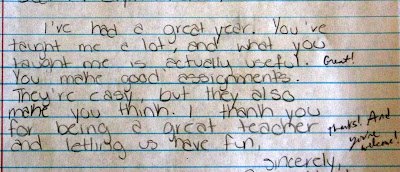 I've had a great year. You've
taught me a lot, and what you
taught me is actually useful. Great!
You make good assignments.
They're easy, but they also
make you think. I thank you
for being a great teacher Thanks! And
and letting us have fun. you're welcome!
Sincerely,